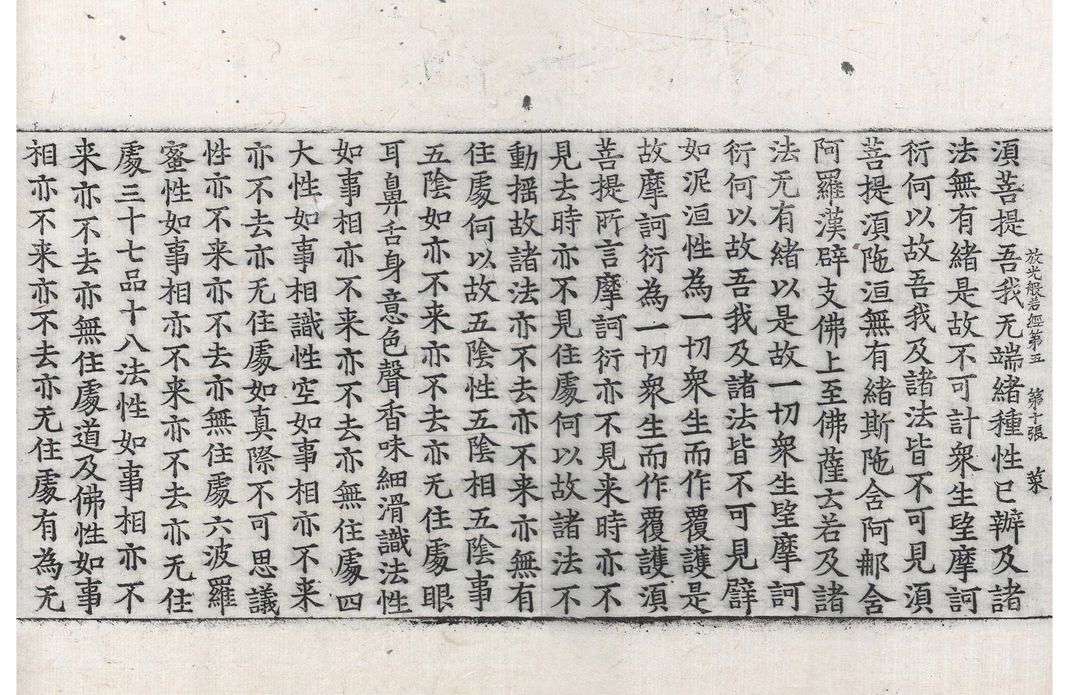 放光般若經第五 第十張 菜
湏菩提吾我无端緒種性已辦及諸
法無有緒是故不可計衆生墍摩訶
衍何以故吾我及諸法皆不可見湏
菩提湏陁洹無有緒斯陁含阿那含
阿羅漢辟支佛上至佛薩云若及諸
法无有緒以是故一切衆生墍摩訶
衍何以故吾我及諸法皆不可見譬
如泥洹性為一切衆生而作覆護是
故摩訶衍為一切衆生而作覆護湏
菩提所言摩訶衍亦不見来時亦不
見去時亦不見住處何以故諸法不
動揺故諸法亦不去亦不来亦無有
住處何以故五陰性五陰相五陰事
五陰如亦不来亦不去亦无住處眼
耳鼻舌身意色聲香味細滑識法性
如事相亦不来亦不去亦無住處四
大性如事相識性空如事相亦不来
亦不去亦无住處如真際不可思議
性亦不来亦不去亦無住處六波羅
蜜性如事相亦不来亦不去亦无住
處三十七品十八法性如事相亦不
来亦不去亦無住處道及佛性如事
相亦不来亦不去亦无住處有為无